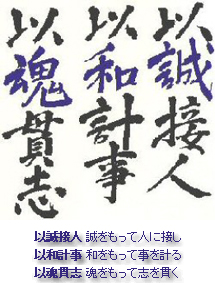 以誠接人
以和計事
以魂貫志
以誠接人 誠をもって人に接し
以和計事 和をもって事を計る
以魂貫志 魂をもって志を貫く